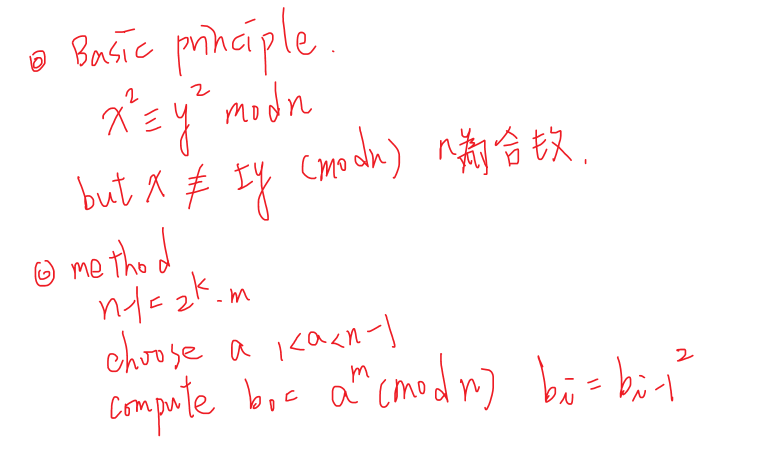 ◎ Basic principle.
x² ≡ y² mod n
but x ≢ ±y (mod n) n為合数.
◎ method
n-1 = 2^k · m
choose a 1<a<n-1
compute b₀ = a^m (mod n) bᵢ = bᵢ₋₁²